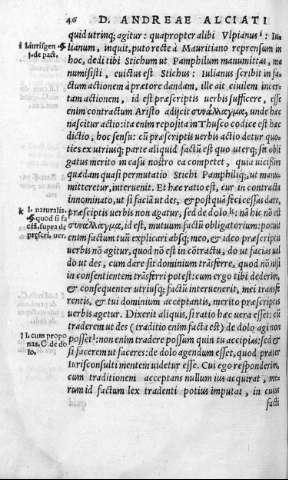 40 D. ANDREAE ALCIATI
quid utrinq; agitur: quapropter alibi Vlpianus i: Iu
lianum, inquit, puto recte à Mauritiano reprensum in
hoc, dedi tibi Stichum ut Pamphilum manumittas, ma
numisisti, euictus est Stichus: Iulianus scribit in fa-
ctum actionem à prætore dandam, ille ait ciuilem incer-
tam actionem, id est præscriptis uerbis sufficere, esse
enim contractum Aristo adijcit συνάλλαγμα, unde hæc
nascitur actio: ita enim reposita in Thusco codice est hæc
dictio, hoc sensu: cū præscriptis uerbis actio detur quo-
ties ex utriusq; parte aliquid factū est quo uterq; sit obli
gatus merito in casu nostro ea competet, quia uicissim
quædam quasi permutatio Stichi Pamphiliq;, ut manu-
mitteretur, interuenit. Et hæc ratio est, cur in contractu
innominato, ut si faciā ut des, & postquā feci cessas dare,
præscriptis uerbis non agatur, sed de dolo k: nā hic nō est
συνάλλαγμα, id est, mutuum factū obligatorium: potuit
enim factum tuū explicari absq; meo, & ideo præscriptis
uerbis nō agitur, quod nō est in cōtractu, do ut facias uel
do ut des, cum dare sit dominium trāsferre, quod nō nisi
in consentientem trāsferri potest: cum ergo tibi dederim,
& consequenter utriusq; factū interuenerit, mei transfe
rentis, & tui dominium acceptantis, merito præscriptis
uerbis agetur. Dixerit aliquis, si ratio hæc uera esset: cū
traderem ut des (traditio enim facta est) de dolo agi non
posset l: non enim tradere possum quin tu accipias: sed &
si facerem ut faceres: de dolo agendum esset, quod præter
Iurisconsulti mentem uidetur esse. Cui ego responderim,
cum traditionem acceptans nullum ius acquirat, me-
rum id factum lex tradenti potius imputat, in cuius
facti
i Iurisgen
§. de pact.
k l. naturalis.
§. quod si fa
ciā. supra de
præscri. uer.
l l. cum propo
nas. C. de do
lo.